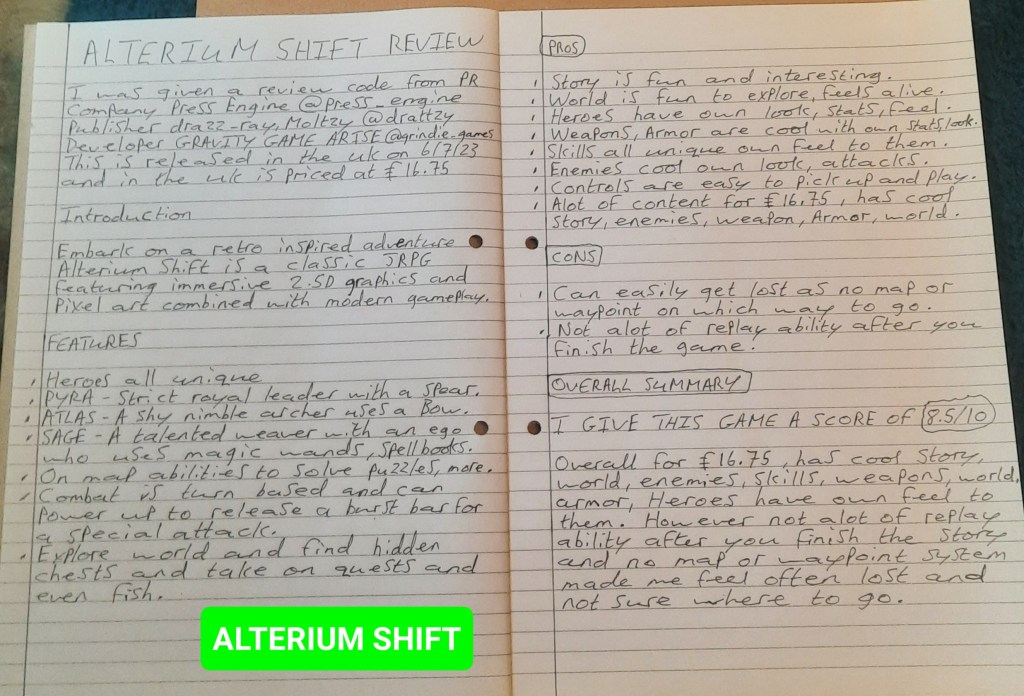 ALTERIUM SHIFT REVIEW
I was given a review code from PR
Company Press Engine @press_engine
Publisher drazz-ray, Moltzy @drattzy
Developer GRAVITY GAME ARISE @agrindie_games
This is released in the uk on 6/7/23
and in the uk is priced at £16.75
Introduction
Embark on a retro inspired adventure
Alterium Shift is a classic JRPG
featuring immersive 2.5D graphics and
Pixel art combined with modern gameplay.
FEATURES
• Heroes all unique
• PYRA - Strict royal leader with a spear.
• ATLAS - A shy nimble archer uses a Bow.
• SAGE - A talented weaver with an ego
who uses magic wands, spellbooks.
• On map abilities to solve puzzles, more.
• Combat is turn based and can
power up to release a burst bar for
a special attack.
• Explore world and find hidden
chests and take on quests and
even fish.
PROS
• Story is fun and interesting.
• World is fun to explore, feels alive.
• Heroes have own look, stats, feel.
• Weapons, Armor are cool with own stats, look.
• Skills all unique own feel to them.
• Enemies cool own look, attacks.
• Controls are easy to pick up and play.
• Alot of content for £16.75, has cool
story, enemies, weapon, Armor, world.
CONS
• Can easily get lost as no map or
waypoint on which way to go.
• Not alot of replay ability after you
finish the game.
OVERALL SUMMARY
• I GIVE THIS GAME A SCORE OF 8.5/10
Overall for £16.75, has cool story,
world, enemies, skills, weapons, world,
armor, Heroes have own feel to
them. However not alot of replay
ability after you finish the story
and no map or waypoint system
made me feel often lost and
not sure where to go.
ALTERIUM SHIFT